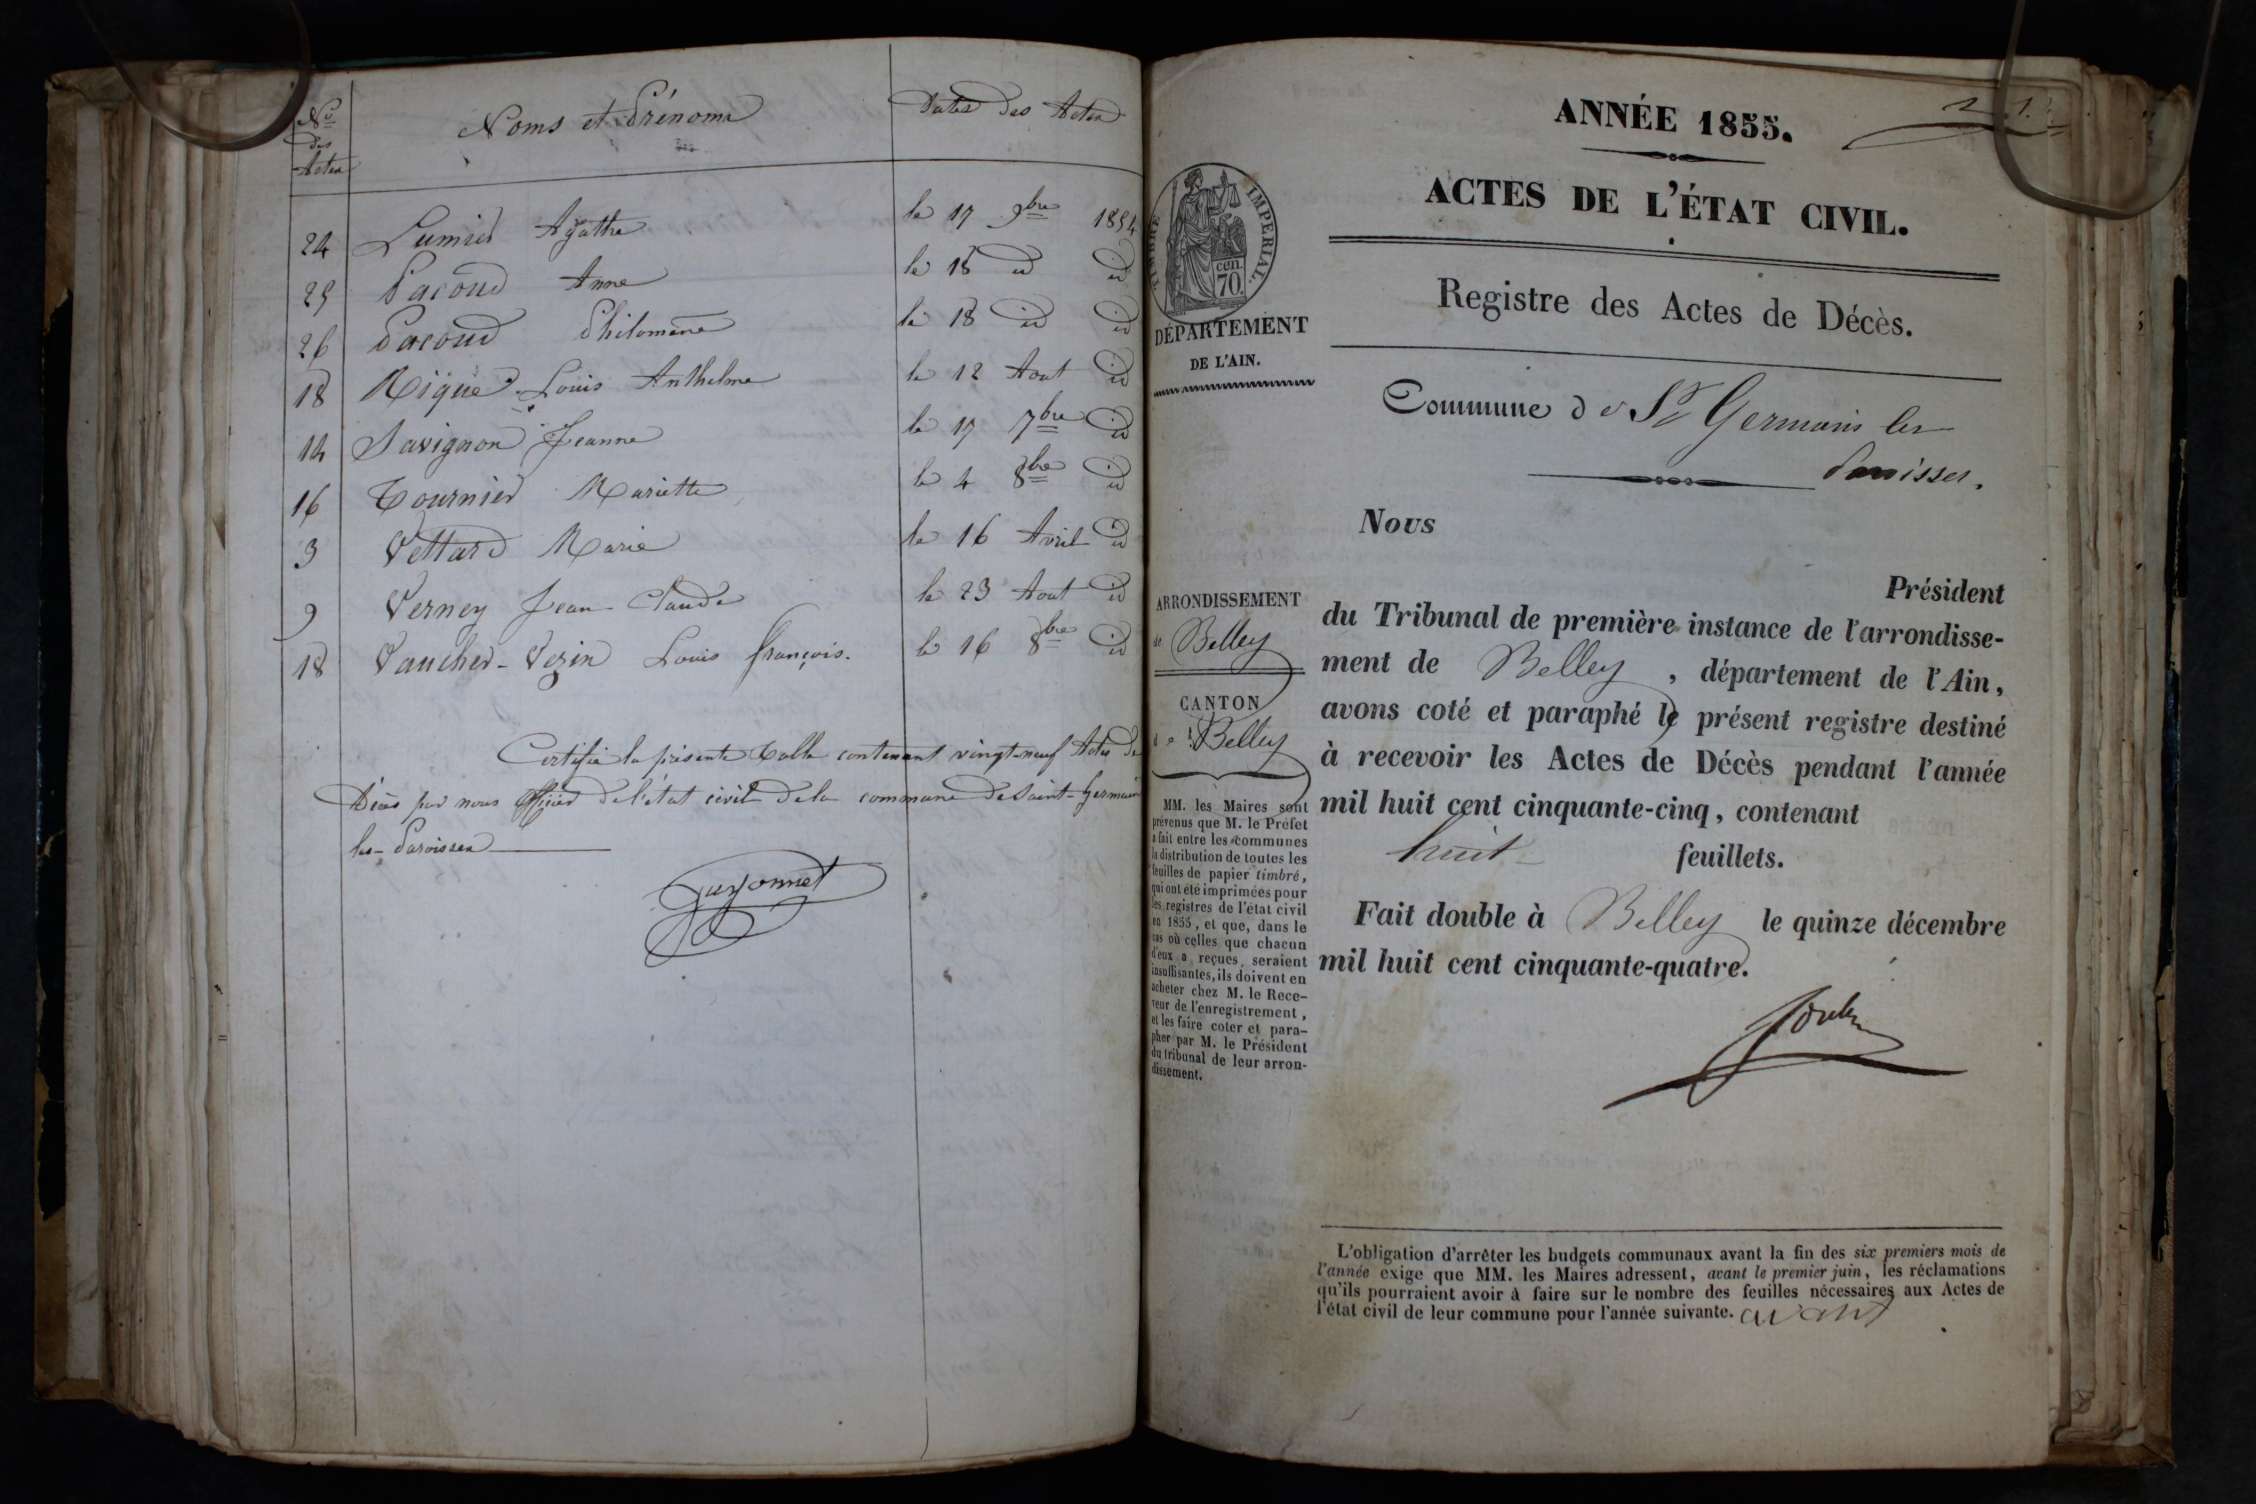 Nos des Actes
Noms et Prénoms
Dates des Actes
24 Lumier Agathe le 17 9bre 1854
25 Pacoud Anne le 18 id id
26 Pacoud Philomene le 18 id id
18 Rique Louis Anthelme le 12 Aout id
14 Savignon Jeanne le 17 7bre id
16 Tournier Mariette le 4 8bre id
3 Vettard Marie le 16 Avril id
9 Verney Jean Claude le 23 Aout id
18 Vaucher-Vezin Louis françois. le 16 8bre id
Certifié la présente Table contenant vingt-neuf Actes de
Décès par nous officier de l'état civil de la commune de Saint-Germain
les-Paroisses
ANNÉE 1855.
ACTES DE L'ÉTAT CIVIL.
TIMBRE IMPERIAL.
cen.
70.
Registre des Actes de Décès.
DÉPARTEMENT
DE L'AIN.
Commune de St Germain les
Paroisses.
Nous
Président
du Tribunal de première instance de l'arrondisse-
ment de Belley, département de l'Ain,
avons coté et paraphé le présent registre destiné
à recevoir les Actes de Décès pendant l'année
mil huit cent cinquante-cinq, contenant
huit feuillets.
Fait double à Belley le quinze décembre
mil huit cent cinquante-quatre.
ARRONDISSEMENT
de Belley
CANTON
de Belley
MM. les Maires sont
prévenus que M. le Préfet
a fait entre les communes
la distribution de toutes les
feuilles de papier timbré,
qui ont été imprimées pour
les registres de l'état civil
en 1855, et que, dans le
cas où celles que chacun
d'eux a reçues seraient
insuffisantes, ils doivent en
acheter chez M. le Rece-
veur de l'enregistrement,
et les faire coter et para-
pher par M. le Président
du tribunal de leur arron-
dissement.
L'obligation d'arrêter les budgets communaux avant la fin des six premiers mois de
l'année exige que MM. les Maires adressent, avant le premier juin, les réclamations
qu'ils pourraient avoir à faire sur le nombre des feuilles nécessaires aux Actes de
l'état civil de leur commune pour l'année suivante. avant